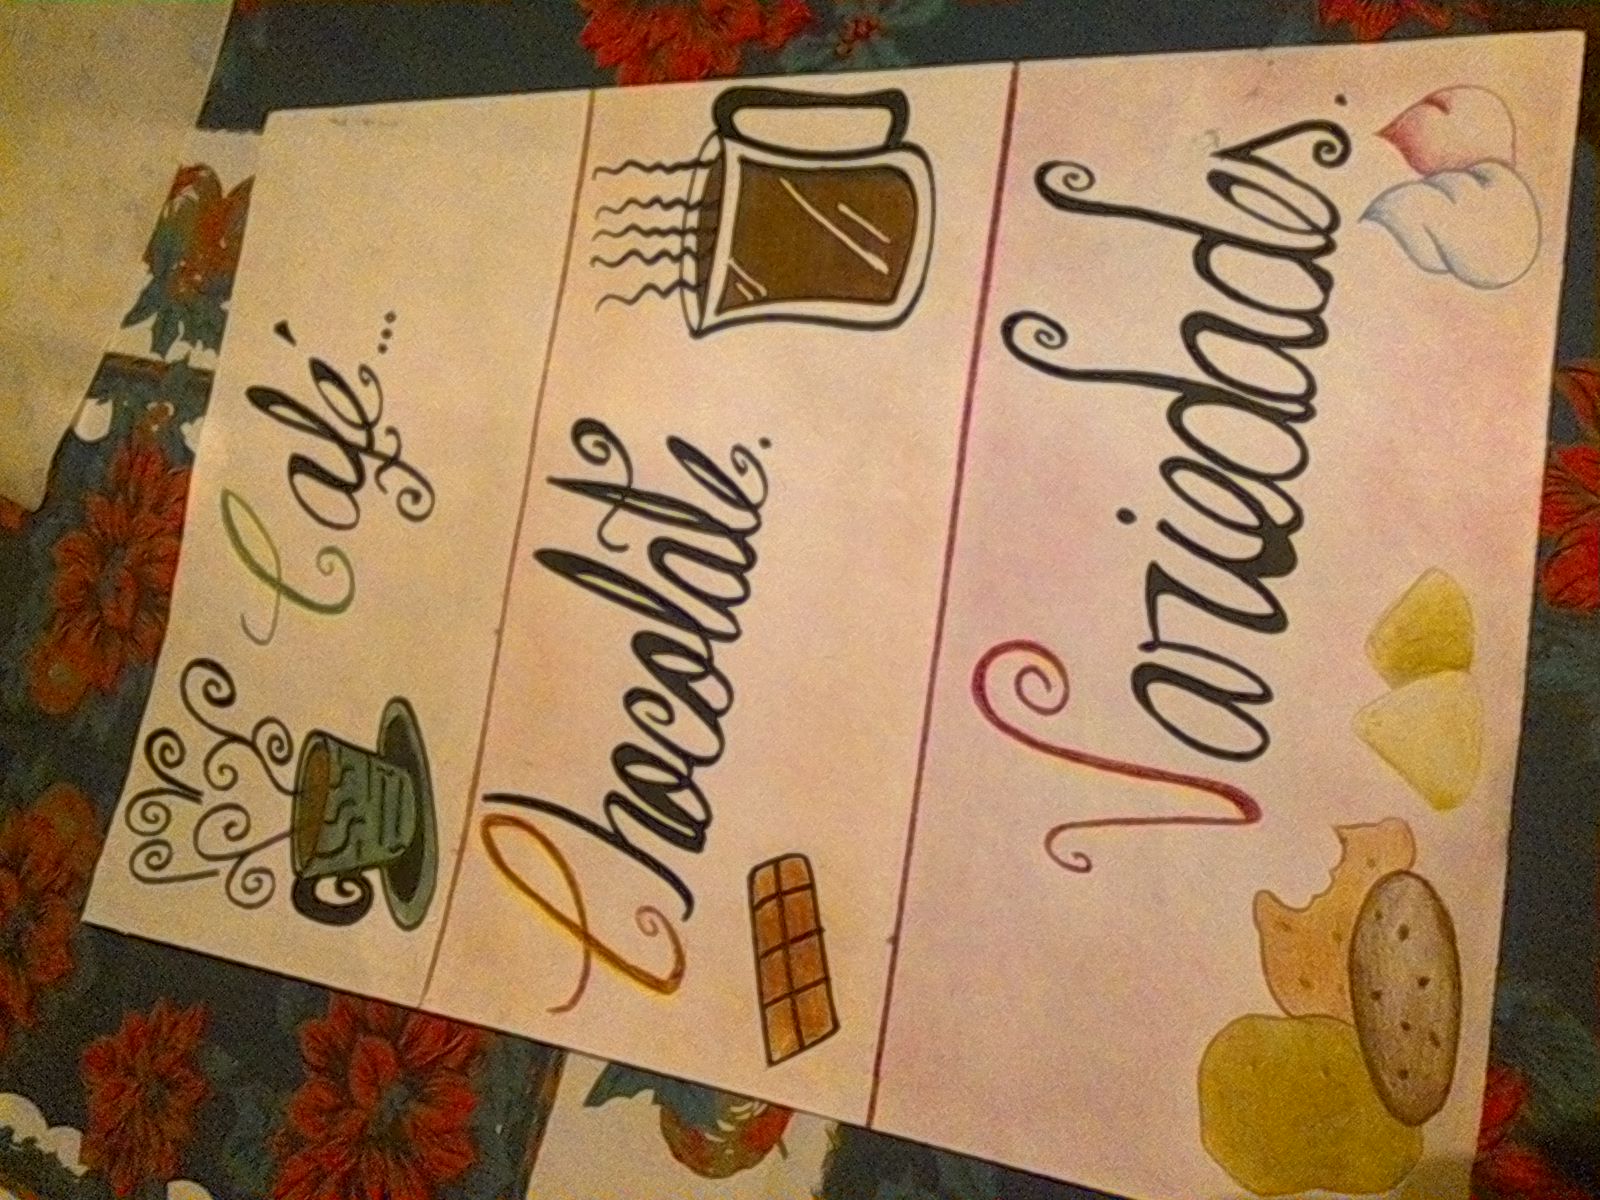 Café...
Chocolate.
Variedades.